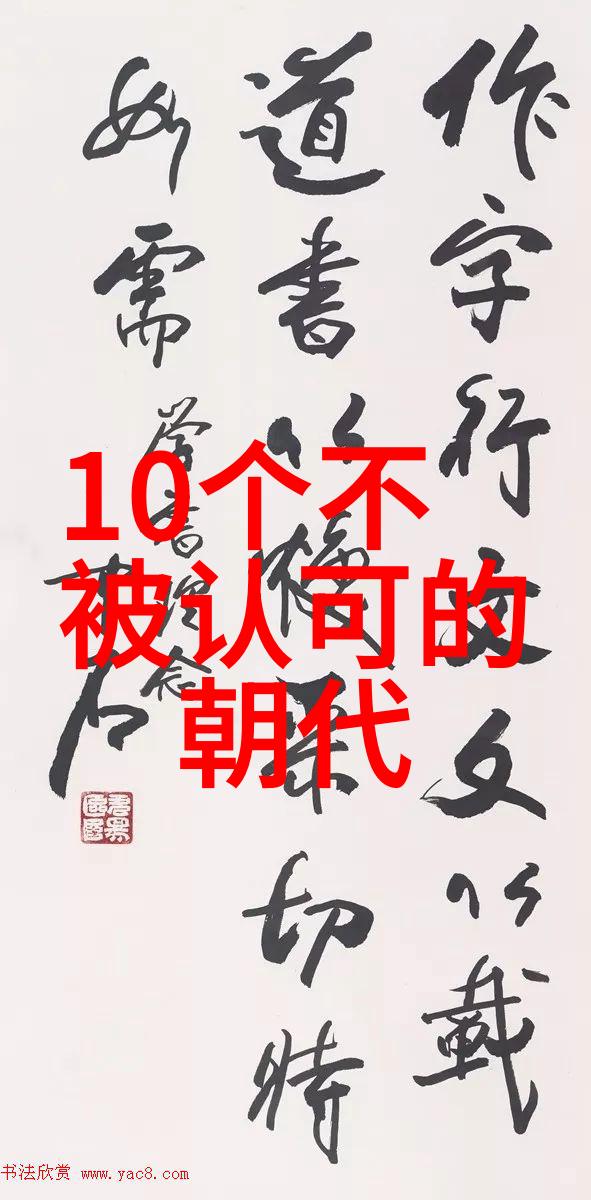 10个不
被认可的
朝代
作字行文文以載
道書以 切時
如需
书法欣赏 www.yac8.com